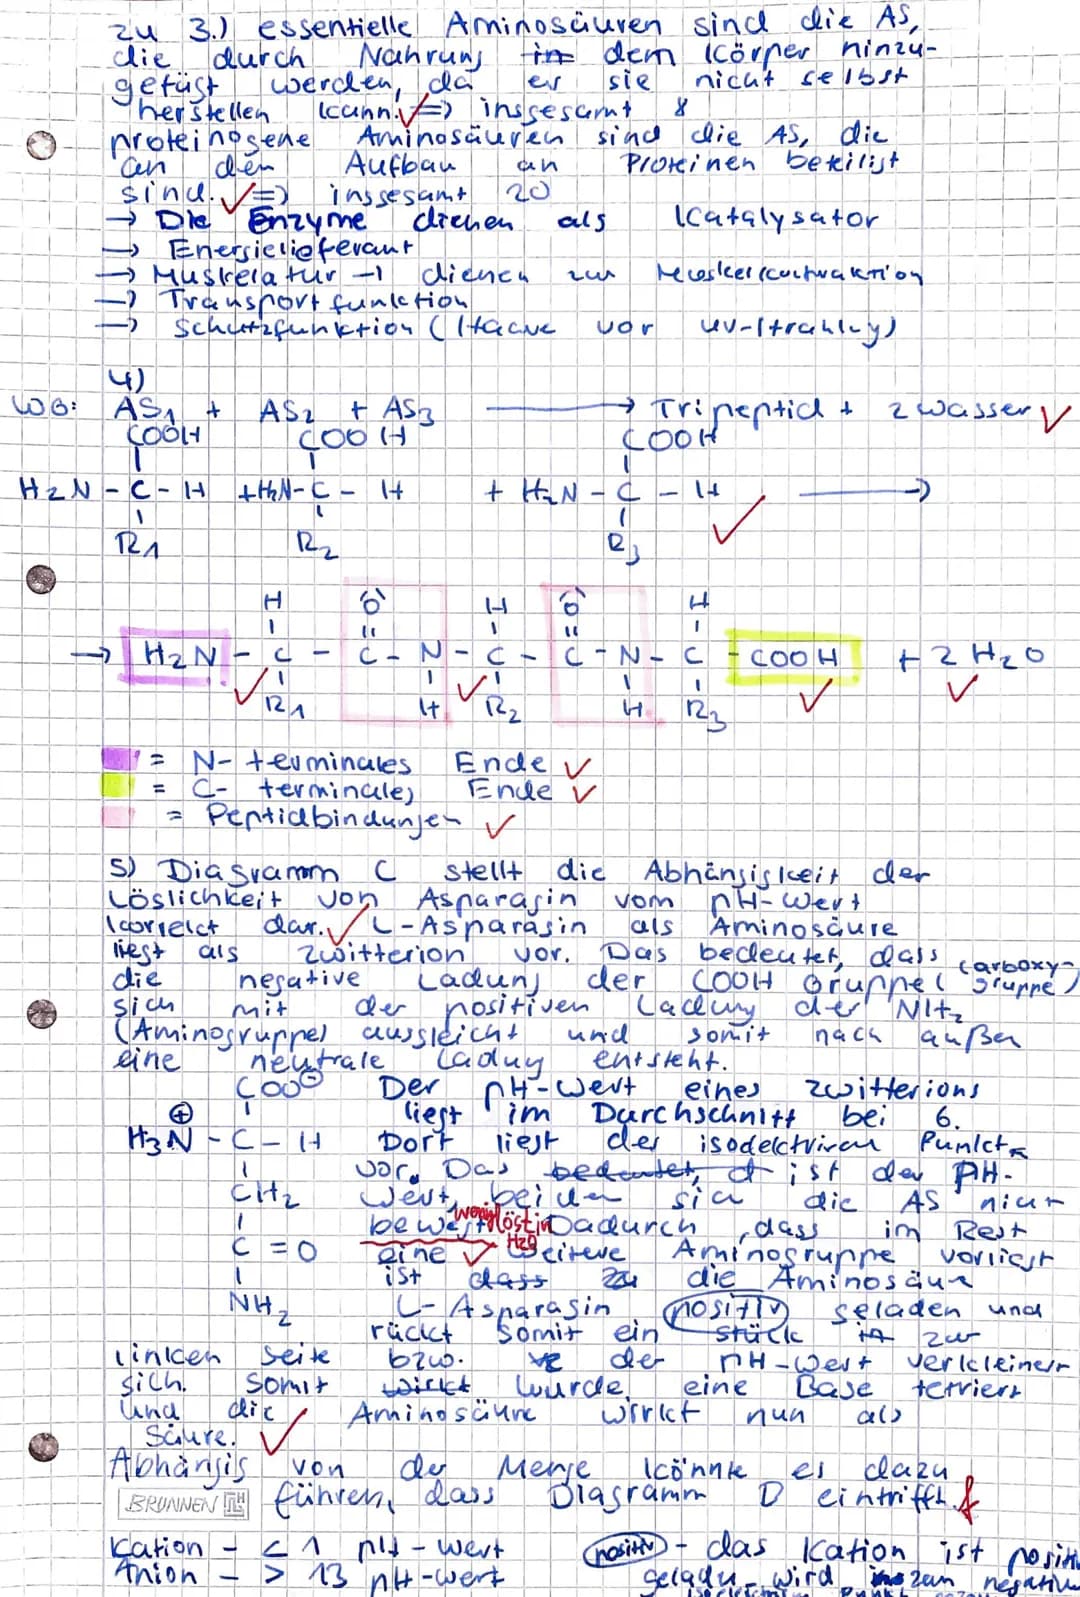 zu 3.) essentielle Aminosäuren sind die AS,
die durch Nahrung in dem Körper hinzu-
gefügt werden, da er sie nicht selbst
herstellen kann. ✓ => insgesamt 8
proteinogene Aminosäuren sind die AS, die
an den Aufbau an Proteinen beteiligt
sind. ✓ => insgesamt 20
→ Die Enzyme dienen als Katalysator
→ Energielieferant
→ Muskelatur → dienen zur Muskelkontraktion
→ Transportfunktion
→ Schutzfunktion (Haare vor UV-Strahlung)
4)
WG: AS1 + AS2 + AS3 → Tripeptid + 2 Wasser ✓
COOH COOH COOH
H2N - C - H + H2N - C - H + H2N - C - H →
R1 R2 R3 ✓
H O H O H
→ H2N - C - C - N - C - C - N - C - COOH + 2 H2O
✓ R1 H ✓ R2 H R3 ✓ ✓
= N-terminales Ende ✓
= C-terminales Ende ✓
= Peptidbindungen ✓
5) Diagramm C stellt die Abhängigkeit der
Löslichkeit von Asparagin vom pH-Wert
korrekt dar. ✓ L-Asparagin als Aminosäure
liegt als Zwitterion vor. Das bedeutet, dass
die negative Ladung der COOH Gruppe (Carboxygruppe)
sich mit der positiven Ladung der NH2
(Aminogruppe) ausgleicht und somit nach außen
eine neutrale Ladung entsteht.
COO⊖ Der pH-Wert eines Zwitterions
⊕ liegt im Durchschnitt bei 6.
H3N - C - H Dort liegt der isoelektrische Punkt
vor. Das bedeutet, d ist der PH-
CH2 Wert, bei den sich die AS nicht
bewegt wenig löst in H2O Dadurch, dass im Rest
C = O eine ✓ weitere Aminogruppe vorliegt
ist dass die Aminosäure
NH2 L-Asparagin positiv geladen und
rückt somit ein stück in zur
linken Seite bzw. der pH-Wert verkleinert
sich. Somit wirkt wurde eine Base
und die Aminosäure wirkt nun als
Säure. ✓
Abhängig von der Menge könnte es dazu
BRUNNEN führen, dass Diagramm D eintrifft. f
Kation - < 1 pH-Wert positiv - das Kation ist
Anion - > 13 pH-Wert wird zum